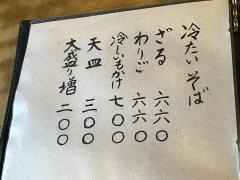 冷たいそば
ざる 六六〇
わりご 六六〇
冷しいもかけ 七〇〇
天皿 三〇〇
大盛り増 二〇〇